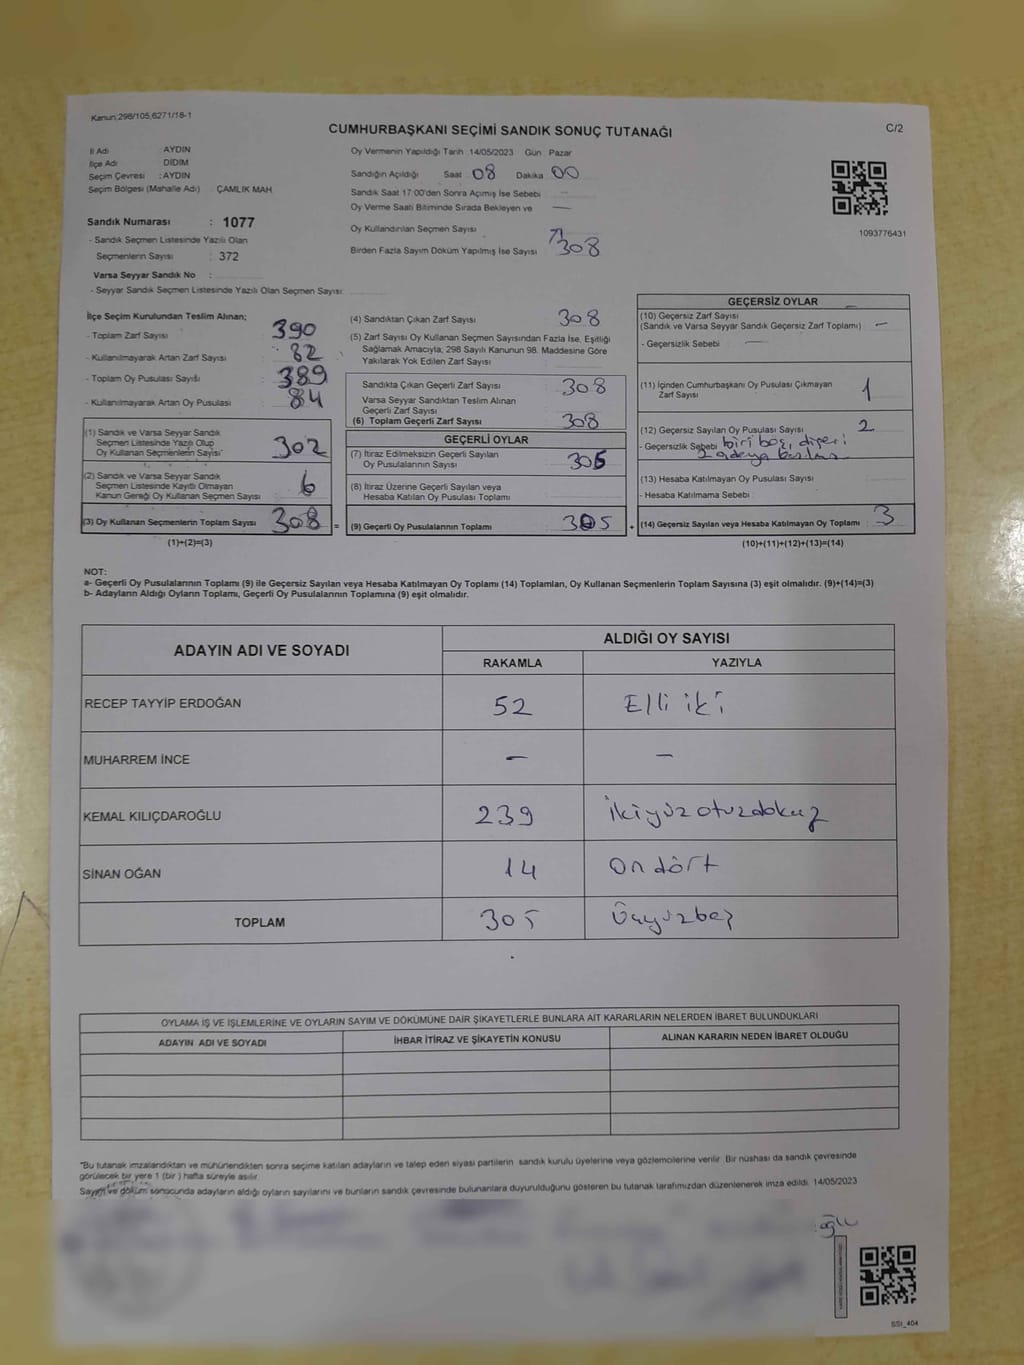 Kanun:298/105,6271/18-1
C/2
CUMHURBAŞKANI SEÇİMİ SANDIK SONUÇ TUTANAĞI
İl Adı : AYDIN
İlçe Adı : DİDİM
Seçim Çevresi : AYDIN
Seçim Bölgesi (Mahalle Adı) : ÇAMLIK MAH.
Sandık Numarası : 1077
- Sandık Seçmen Listesinde Yazılı Olan
Seçmenlerin Sayısı : 372
Varsa Seyyar Sandık No :
- Seyyar Sandık Seçmen Listesinde Yazılı Olan Seçmen Sayısı:
Oy Vermenin Yapıldığı Tarih :14/05/2023 Gün : Pazar
Sandığın Açıldığı Saat : 08 Dakika : 00
Sandık Saat 17:00'den Sonra Açımış İse Sebebi : —
Oy Verme Saati Bitiminde Sırada Bekleyen ve —
Oy Kullandırılan Seçmen Sayısı
Birden Fazla Sayım Döküm Yapılmış İse Sayısı 308
1093776431
İlçe Seçim Kurulundan Teslim Alınan;
- Toplam Zarf Sayısı : 390
- Kullanılmayarak Artan Zarf Sayısı : 82
- Toplam Oy Pusulası Sayısı : 389
- Kullanılmayarak Artan Oy Pusulası : 84
(1) Sandık ve Varsa Seyyar Sandık
Seçmen Listesinde Yazılı Olup
Oy Kullanan Seçmenlerin Sayısı 302
(2) Sandık ve Varsa Seyyar Sandık
Seçmen Listesinde Kayıtlı Olmayan
Kanun Gereği Oy Kullanan Seçmen Sayısı 6
(3) Oy Kullanan Seçmenlerin Toplam Sayısı 308 =
(1)+(2)=(3)
(4) Sandıktan Çıkan Zarf Sayısı : 308
(5) Zarf Sayısı Oy Kullanan Seçmen Sayısından Fazla İse, Eşitliği
Sağlamak Amacıyla; 298 Sayılı Kanunun 98. Maddesine Göre
Yakılarak Yok Edilen Zarf Sayısı :
Sandıkta Çıkan Geçerli Zarf Sayısı : 308
Varsa Seyyar Sandıktan Teslim Alınan
Geçerli Zarf Sayısı :
(6) Toplam Geçerli Zarf Sayısı : 308
GEÇERLİ OYLAR
(7) İtiraz Edilmeksizin Geçerli Sayılan
Oy Pusulalarının Sayısı : 305
(8) İtiraz Üzerine Geçerli Sayılan veya
Hesaba Katılan Oy Pusulası Toplamı :
(9) Geçerli Oy Pusulalarının Toplamı : 305 +
GEÇERSİZ OYLAR
(10) Geçersiz Zarf Sayısı
(Sandık ve Varsa Seyyar Sandık Geçersiz Zarf Toplamı) : —
- Geçersizlik Sebebi : —
(11) İçinden Cumhurbaşkanı Oy Pusulası Çıkmayan
Zarf Sayısı : 1
(12) Geçersiz Sayılan Oy Pusulası Sayısı : 2
- Geçersizlik Sebebi : biri boş, diğeri
2 adaya basılmış
(13) Hesaba Katılmayan Oy Pusulası Sayısı :
- Hesaba Katılmama Sebebi :
(14) Geçersiz Sayılan veya Hesaba Katılmayan Oy Toplamı : 3
(10)+(11)+(12)+(13)=(14)
NOT:
a- Geçerli Oy Pusulalarının Toplamı (9) ile Geçersiz Sayılan veya Hesaba Katılmayan Oy Toplamı (14) Toplamları, Oy Kullanan Seçmenlerin Toplam Sayısına (3) eşit olmalıdır. (9)+(14)=(3)
b- Adayların Aldığı Oyların Toplamı, Geçerli Oy Pusulalarının Toplamına (9) eşit olmalıdır.
ADAYIN ADI VE SOYADI ALDIĞI OY SAYISI
RAKAMLA YAZIYLA
RECEP TAYYİP ERDOĞAN 52 Elli iki
MUHARREM İNCE — —
KEMAL KILIÇDAROĞLU 239 İkiyüzotuzdokuz
SİNAN OĞAN 14 On dört
TOPLAM 305 Üçyüzbeş
OYLAMA İŞ VE İŞLEMLERİNE VE OYLARIN SAYIM VE DÖKÜMÜNE DAİR ŞİKAYETLERLE BUNLARA AİT KARARLARIN NELERDEN İBARET BULUNDUKLARI
ADAYIN ADI VE SOYADI İHBAR İTİRAZ VE ŞİKAYETİN KONUSU ALINAN KARARIN NEDEN İBARET OLDUĞU
"Bu tutanak imzalandıktan ve mühürlendikten sonra seçime katılan adayların ve talep eden siyasi partilerin sandık kurulu üyelerine veya gözlemcilerine verilir. Bir nüshası da sandık çevresinde
görülecek bir yere 1 (bir ) hafta süreyle asılır.
Sayım ve döküm sonucunda adayların aldığı oyların sayılarını ve bunların sandık çevresinde bulunanlara duyurulduğunu gösteren bu tutanak tarafımızdan düzenlenerek imza edildi. 14/05/2023
oğlu
SSI_404